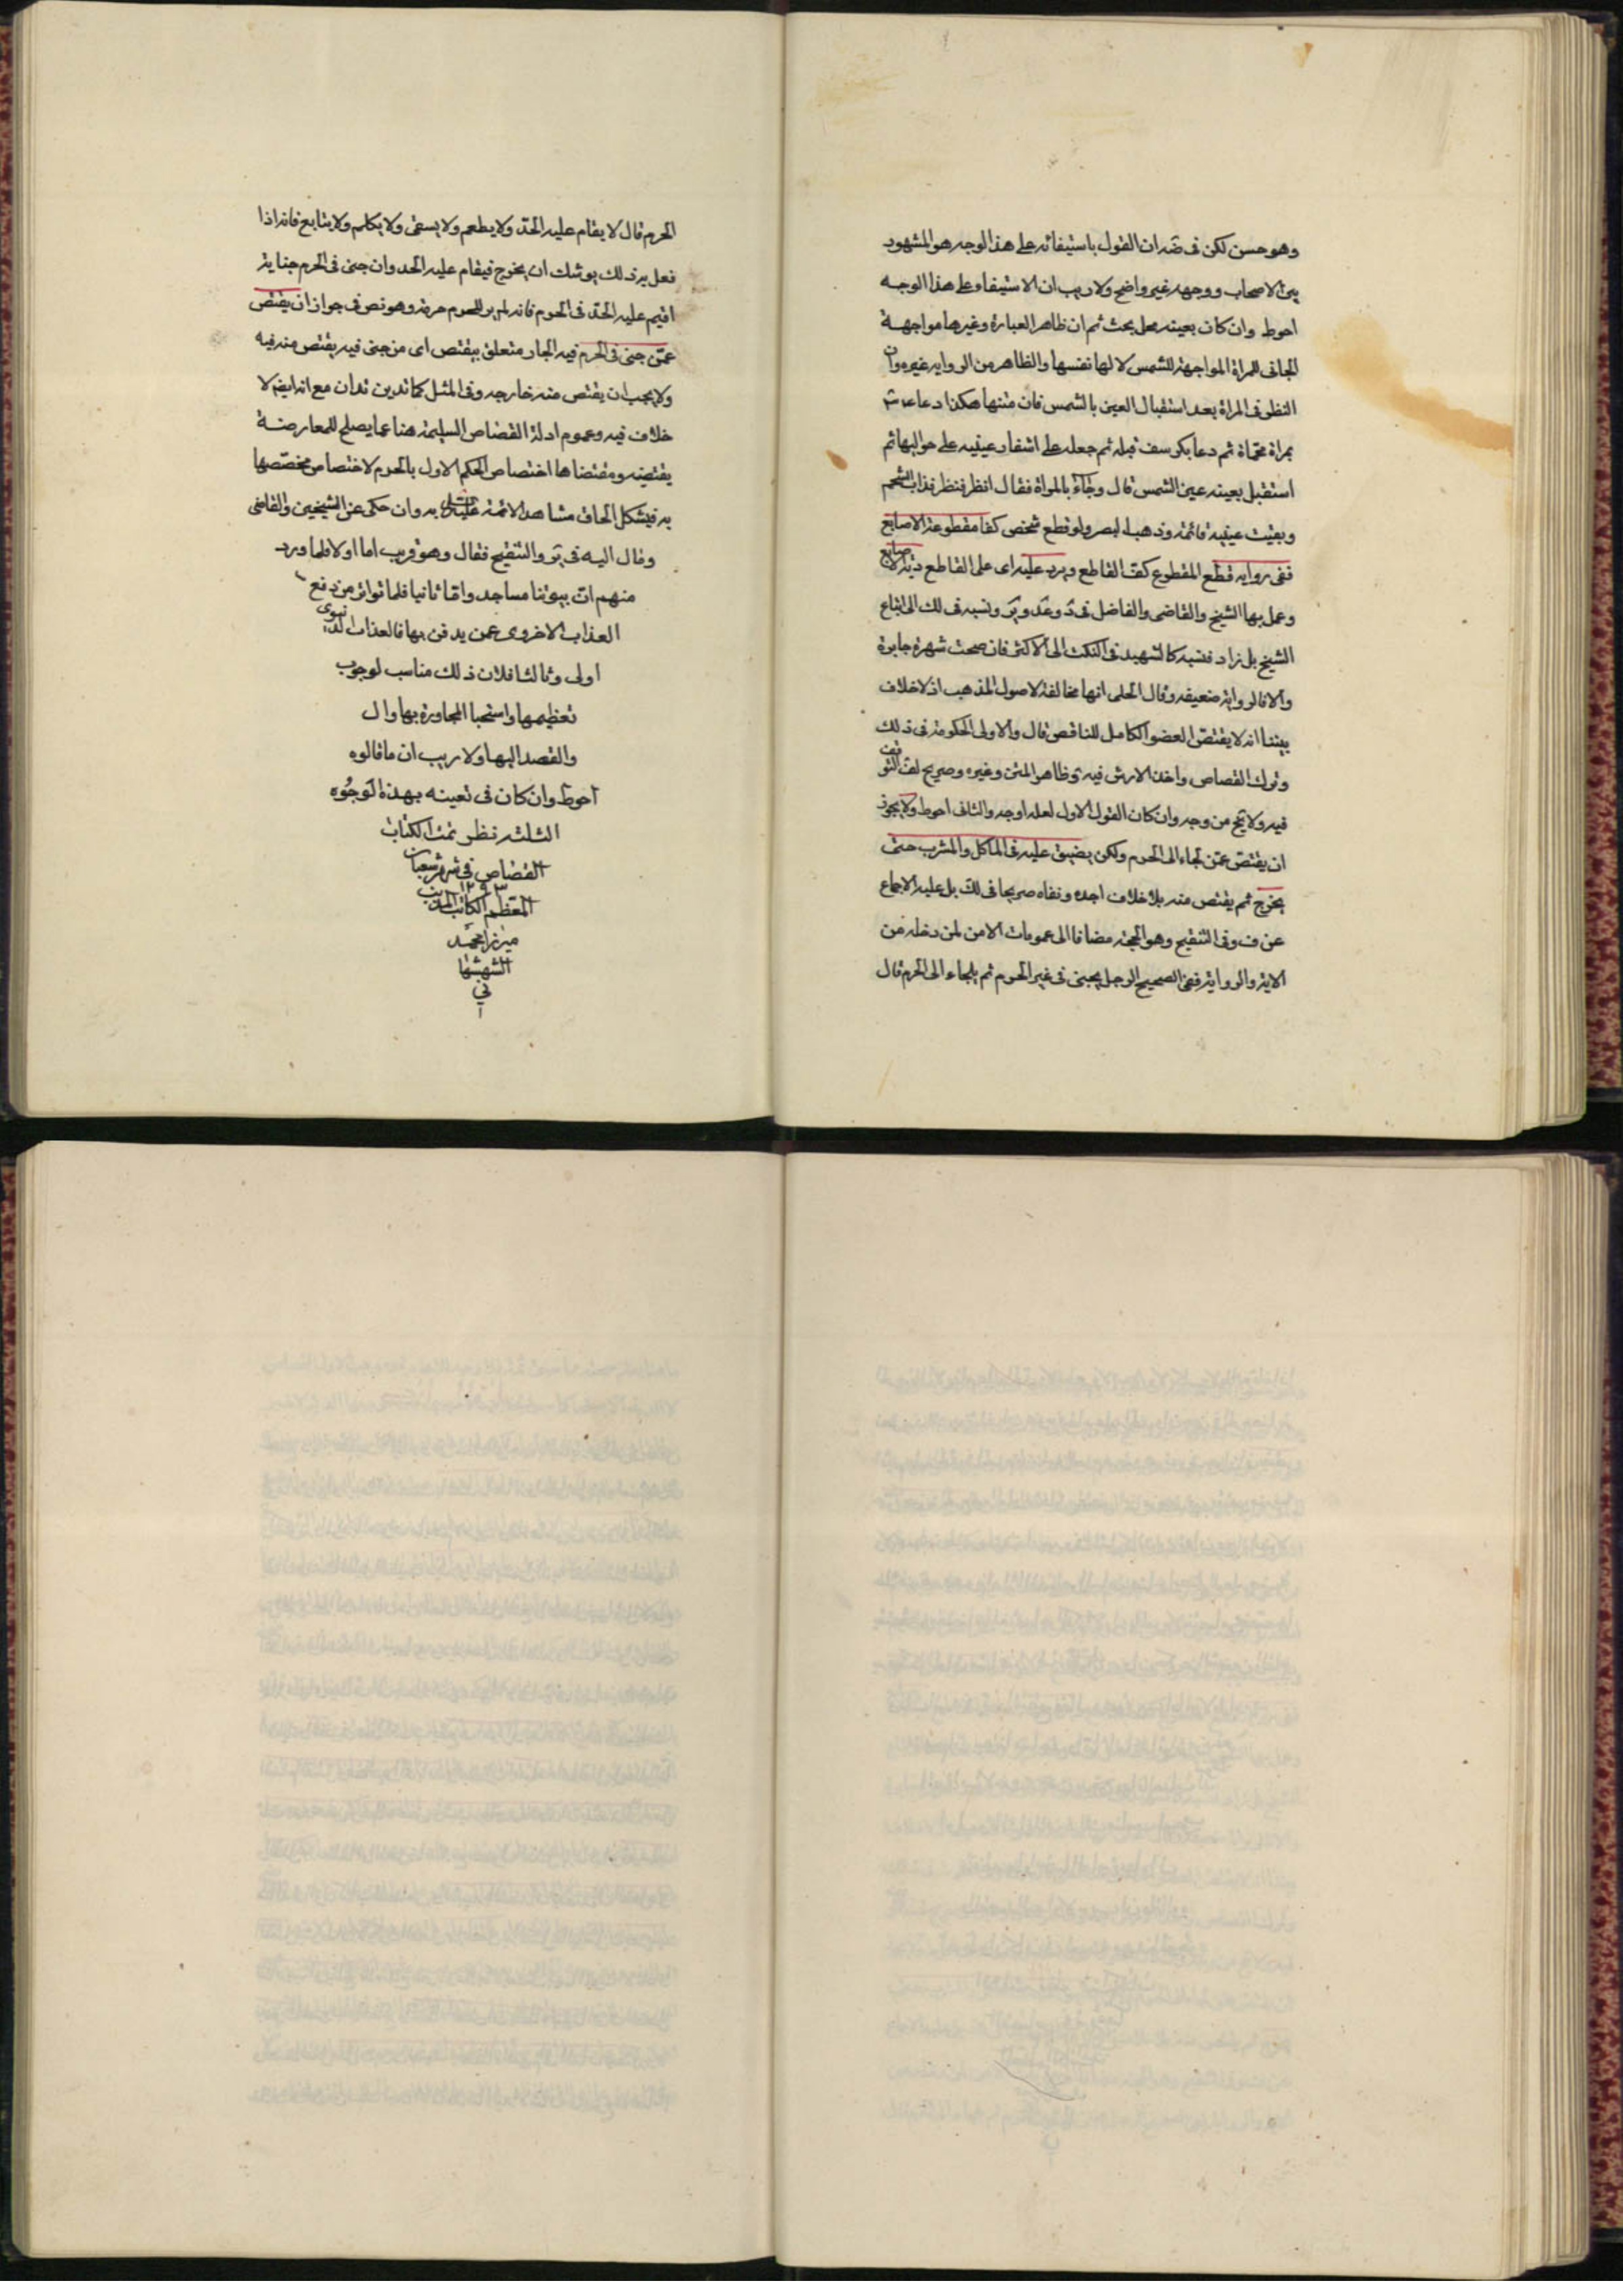 وهو حسن لكن فى ضه ان القول باستيفائه على هذا الوجه هو المشهور
بين الاصحاب ووجهه غير واضح ولا ريب ان الاستيفاء على هذا الوجه
احوط وان كان بعينه محل بحث ثم ان ظاهر العبارة وغيرها مواجهة
الجانى للمراة المواجهة للشمس لا لها نفسها والظاهر من الرواية غيره وان
النظر فى المراة بعد استقبال العين بالشمس فان متنها هكذا دعا على
بمراة محماة ثم دعا بكرسف فبله ثم جعله على اشفار عينيه على حواليها ثم
استقبل بعينه عين الشمس قال وجاء بالمراة فقال انظر فنظر فذاب الشحم
وبقيت عينيه قائمة وذهب البصر ولو قطع شخص كفا مقطوعة الاصابع
ففى رواية قطع المقطوع كف القاطع ويرد عليه اى على القاطع دية الاصابع
وعمل بها الشيخ والقاضى والفاضل فى د وعد ور ونسبه فى لك الى اتباع
الشيخ بل زاد فنسبه كالشهيد فى النكت الى الاكثر فان صحت شهرة جابرة
والا فالرواية ضعيفة وقال الحلى انها مخالفة لاصول المذهب اذ لا خلاف
بيننا انه لا يقتص العضو الكامل للناقص قال والاولى الحكومة فى ذلك
وترك القصاص واخذ الارش فيه وظاهر المتن وغيره وصريح لف التوقف
فيه ولا يخ من وجه وان كان القول الاول لعله اوجه والثانى احوط ولا يجوز
ان يقتص عمن لجاء الى الحرم ولكن يضيق عليه فى الماكل والمشرب حتى
يخرج ثم يقتص منه بلا خلاف اجده ونفاه صريحا فى لك بل عليه الاجماع
عن ف وفى التنقيح وهو الحجة مضافا الى عمومات الامن لمن دخله من
الاية والرواية ففى الصحيح الرجل يجنى فى غير الحرم ثم يلجاء الى الحرم قال
الحرم قال لا يقام عليه الحد ولا يطعم ولا يسقى ولا يكلم ولا يتابع فانه اذا
فعل به ذلك يوشك ان يخرج فيقام عليه الحد وان جنى فى الحرم جناية
اقيم عليه الحد فى الحرم فانه لم ير للحرم حرمة وهو نص فى جواز ان يقتص
عمن جنى فى الحرم فيه الجار متعلق بيقتص اى من جنى فيه يقتص منه فيه
ولا يجب ان يقتص منه خارجه وفى المثل كما تدين تدان مع انه ايضا لا
خلاف فيه وعموم ادلة القصاص السليمة هنا عما يصلح للمعارضة
يقتضيه ومقتضاها اختصاص الحكم الاول بالحرم لاختصاص مخصصها
به فيشكل الحاق مشاهد الائمة به وان حكى عن الشيخين والقاضى
ومال اليه فى ير والتنقيح فقال وهو قريب اما اولا فلما ورد
منهم ان بيوتنا مساجد واما ثانيا فلما تواتر من دفع
العذاب الاخروى عمن يدفن بها فالعذاب الدنيوى
اولى وثالثا فلان ذلك مناسب لوجوب
تعظيمها واستحباب المجاورة بها
والقصد اليها ولا ريب ان ما قالوه
احوط وان كان فى تعينه بهذه الوجوه
الثلثة نظر تمت الكتاب
القصاص فى شهر شعبان
المعظم ١٢٩٣ الكاتب
ميرزا محمد
الشهشها
نى